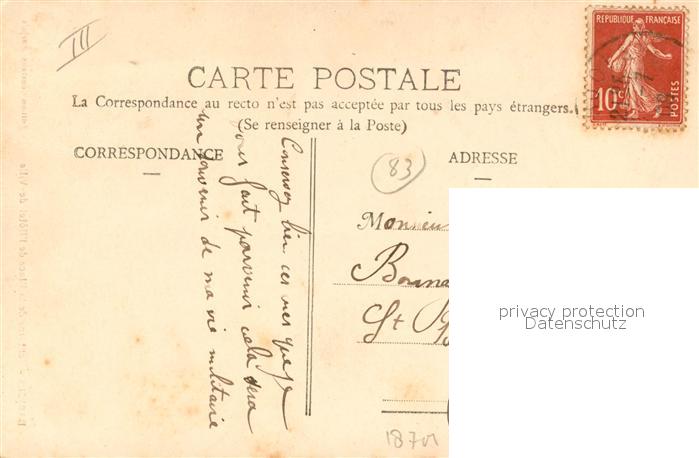 III
RÉPUBLIQUE FRANÇAISE
10c
POSTES
CARTE POSTALE
La Correspondance au recto n'est pas acceptée par tous les pays étrangers.
(Se renseigner à la Poste)
CORRESPONDANCE
ADRESSE
83
Conservez bien ces vues que je
vous fait parvenir cela sera
un souvenir de ma vie militaire
Monsieur
St
privacy protection
Datenschutz